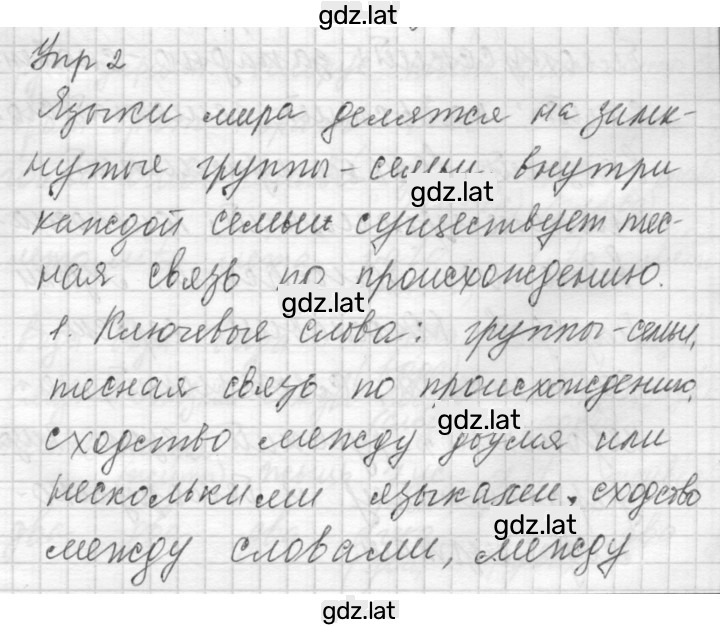 gdz.lat
Упр 2
Языки мира делятся на замк-
нутые группы-семьи, внутри
gdz.lat
каждой семьи существует тес-
ная связь по происхождению.
gdz.lat
1. Ключевые слова: группы-семьи,
тесная связь по происхождению,
gdz.lat
сходство между двумя или
несколькими языками, сходство
gdz.lat
между словами, между
gdz.lat